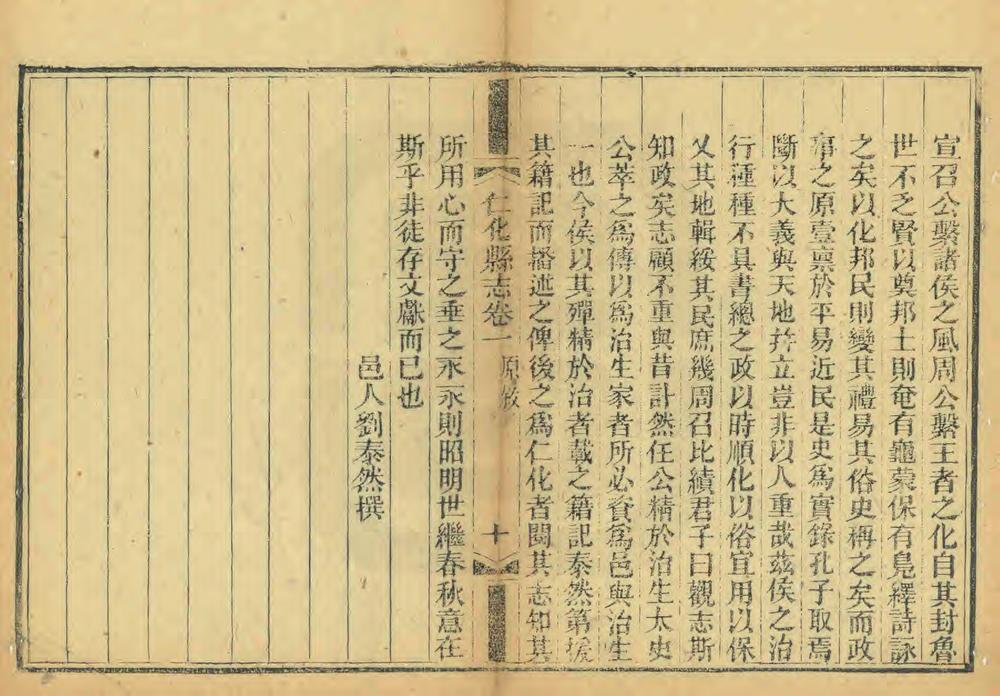 宣召公繫諸侯之風周公繫王者之化自其封魯
世不乏賢以奠邦土則奄有龜蒙保有鳧繹詩詠
之矣以化邦民則變其禮易其俗史稱之矣而政
事之原壹禀於平易近民是史爲實錄孔子取焉
斷以大義與天地幷立豈非以人重哉茲侯之治
行種種不具書總之政以時順化以俗宜用以保
乂其地輯綏其民庶幾周召比績君子曰觀志斯
知政矣志顧不重與昔計然任公精於治生太史
公萃之爲傳以爲治生家者所必資爲邑與治生
一也今侯以其殫精於治者載之籍記泰然第援
其籍記而播述之俾後之爲仁化者閱其志知其
仁化縣志卷一 原敘 十
所用心而守之垂之永永則昭明世繼春秋意在
斯乎非徒存文獻而已也
邑人劉泰然撰